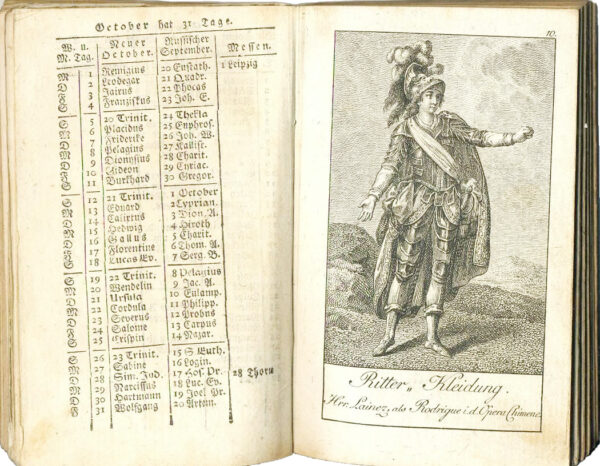 October hat 31 Tage.
W. u. M. Tag. Neuer October. Russischer September. Messen.
M 1 Remigius 20 Eustath. 1 Leipzig
D 2 Leodegar 21 Quadr.
F 3 Jairus 22 Phocas
S 4 Franziskus 23 Joh. E.
S 5 20 Trinit. 24 Thekla
M 6 Placidus 25 Euphros.
D 7 Friderike 26 Joh. W.
M 8 Pelagius 27 Kallist.
D 9 Dionysius 28 Charit.
F 10 Gideon 29 Cyriac.
S 11 Burkhard 30 Gregor.
S 12 21 Trinit. 1 October
M 13 Eduard 2 Cyprian.
D 14 Calixtus 3 Dion. A.
M 15 Hedwig 4 Hiroth
D 16 Gallus 5 Charit.
F 17 Florentine 6 Thom. A.
S 18 Lucas Ev. 7 Serg. B.
S 19 22 Trinit. 8 Pelagius
M 20 Wendelin 9 Jac. A.
D 21 Ursula 10 Eulamp.
M 22 Cordula 11 Philipp.
D 23 Severus 12 Probus
F 24 Salome 13 Carpus
S 25 Crispin 14 Nazar.
S 26 23 Trinit. 15 S Euth.
M 27 Sabine 16 Login.
D 28 Sim. Jud. 17 Hos. Pr. 28 Thorn
M 29 Narcissus 18 Luc. Ev.
D 30 Hartmann 19 Joel Pr.
F 31 Wolfgang 20 Artem.
10.
Ritter„ Kleidung.
Hrr. Lainez, als Rodrigue i. d. Opera Chimene